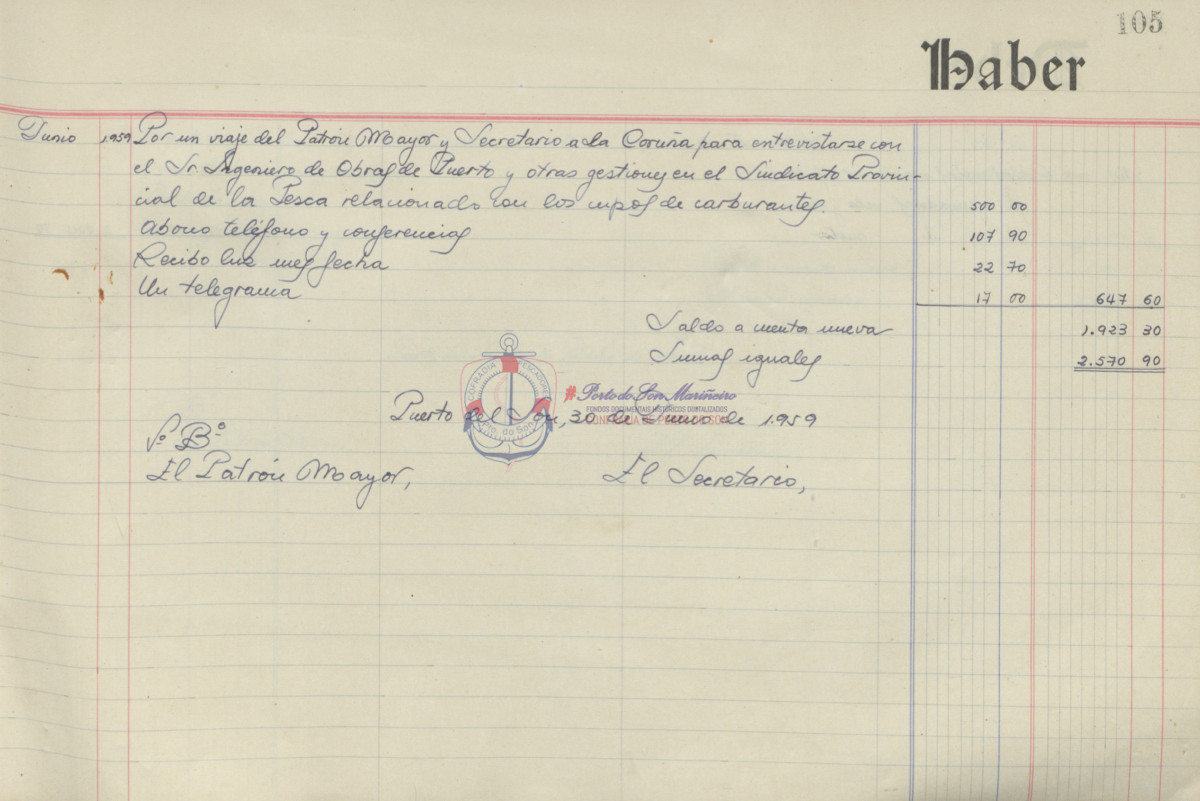 105
Haber
Junio 1.959 Por un viaje del Patrón Mayor y Secretario a La Coruña para entrevistarse con
el Sr. Ingeniero de Obras de Puerto y otras gestiones en el Sindicato Provin-
cial de la Pesca relacionado con los cupos de carburantes. 500 00
Abono teléfono y conferencias 107 90
Recibo luz mes fecha 22 70
Un telegrama 17 00 647 60
Saldo a cuenta nueva 1.923 30
Sumas iguales 2.570 90
COFRADÍA PESCADORES
Pto. do Son
# Porto do Son Mariñeiro
FONDOS DOCUMENTAIS HISTÓRICOS DIXITALIZADOS
CONFRARÍA DE PORTO DO SON
Puerto del Son, 30 de Junio de 1.959
Vº Bº
El Patrón Mayor, El Secretario,